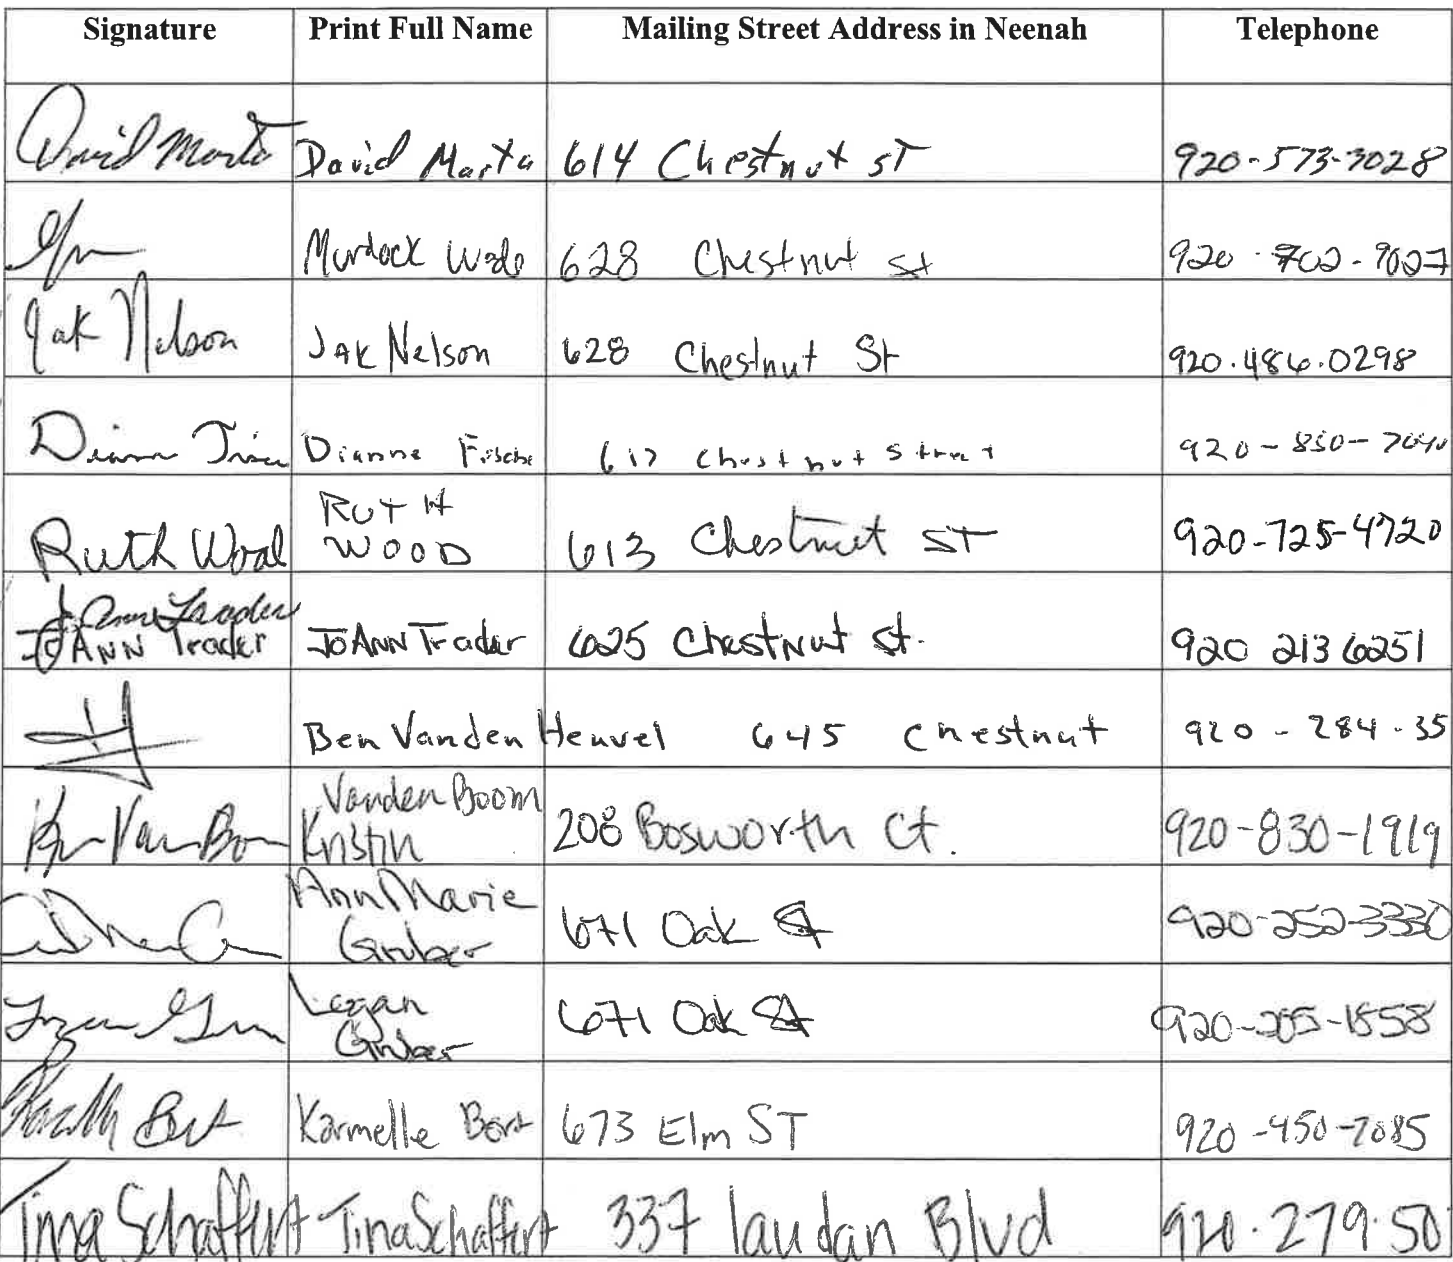 Signature Print Full Name Mailing Street Address in Neenah Telephone
David Marta David Marta 614 Chestnut ST 920-573-7028
Murdock Wade 628 Chestnut St 920-702-9027
Jak Nelson JAK Nelson 628 Chestnut St 920.486.0298
Dianne Dianne 617 Chestnut Street 920-850-7040
Ruth Wood RUTH WOOD 613 Chestnut ST 920-725-4720
JoAnn Trader
JOANN Trader JoANN Trader 625 Chestnut St. 920 213 6251
Ben Vanden Heuvel 645 Chestnut 920-284-35
Vanden Boom
Kristin 208 Bosworth Ct. 920-830-1919
AnnMarie
Gruber 671 Oak St 920-252-3330
Logan
Gruber 671 Oak St
Karmelle Bort 673 Elm ST 920-450-7085
Tina Schaffert Tina Schaffert 337 laudan Blvd 920.279.50